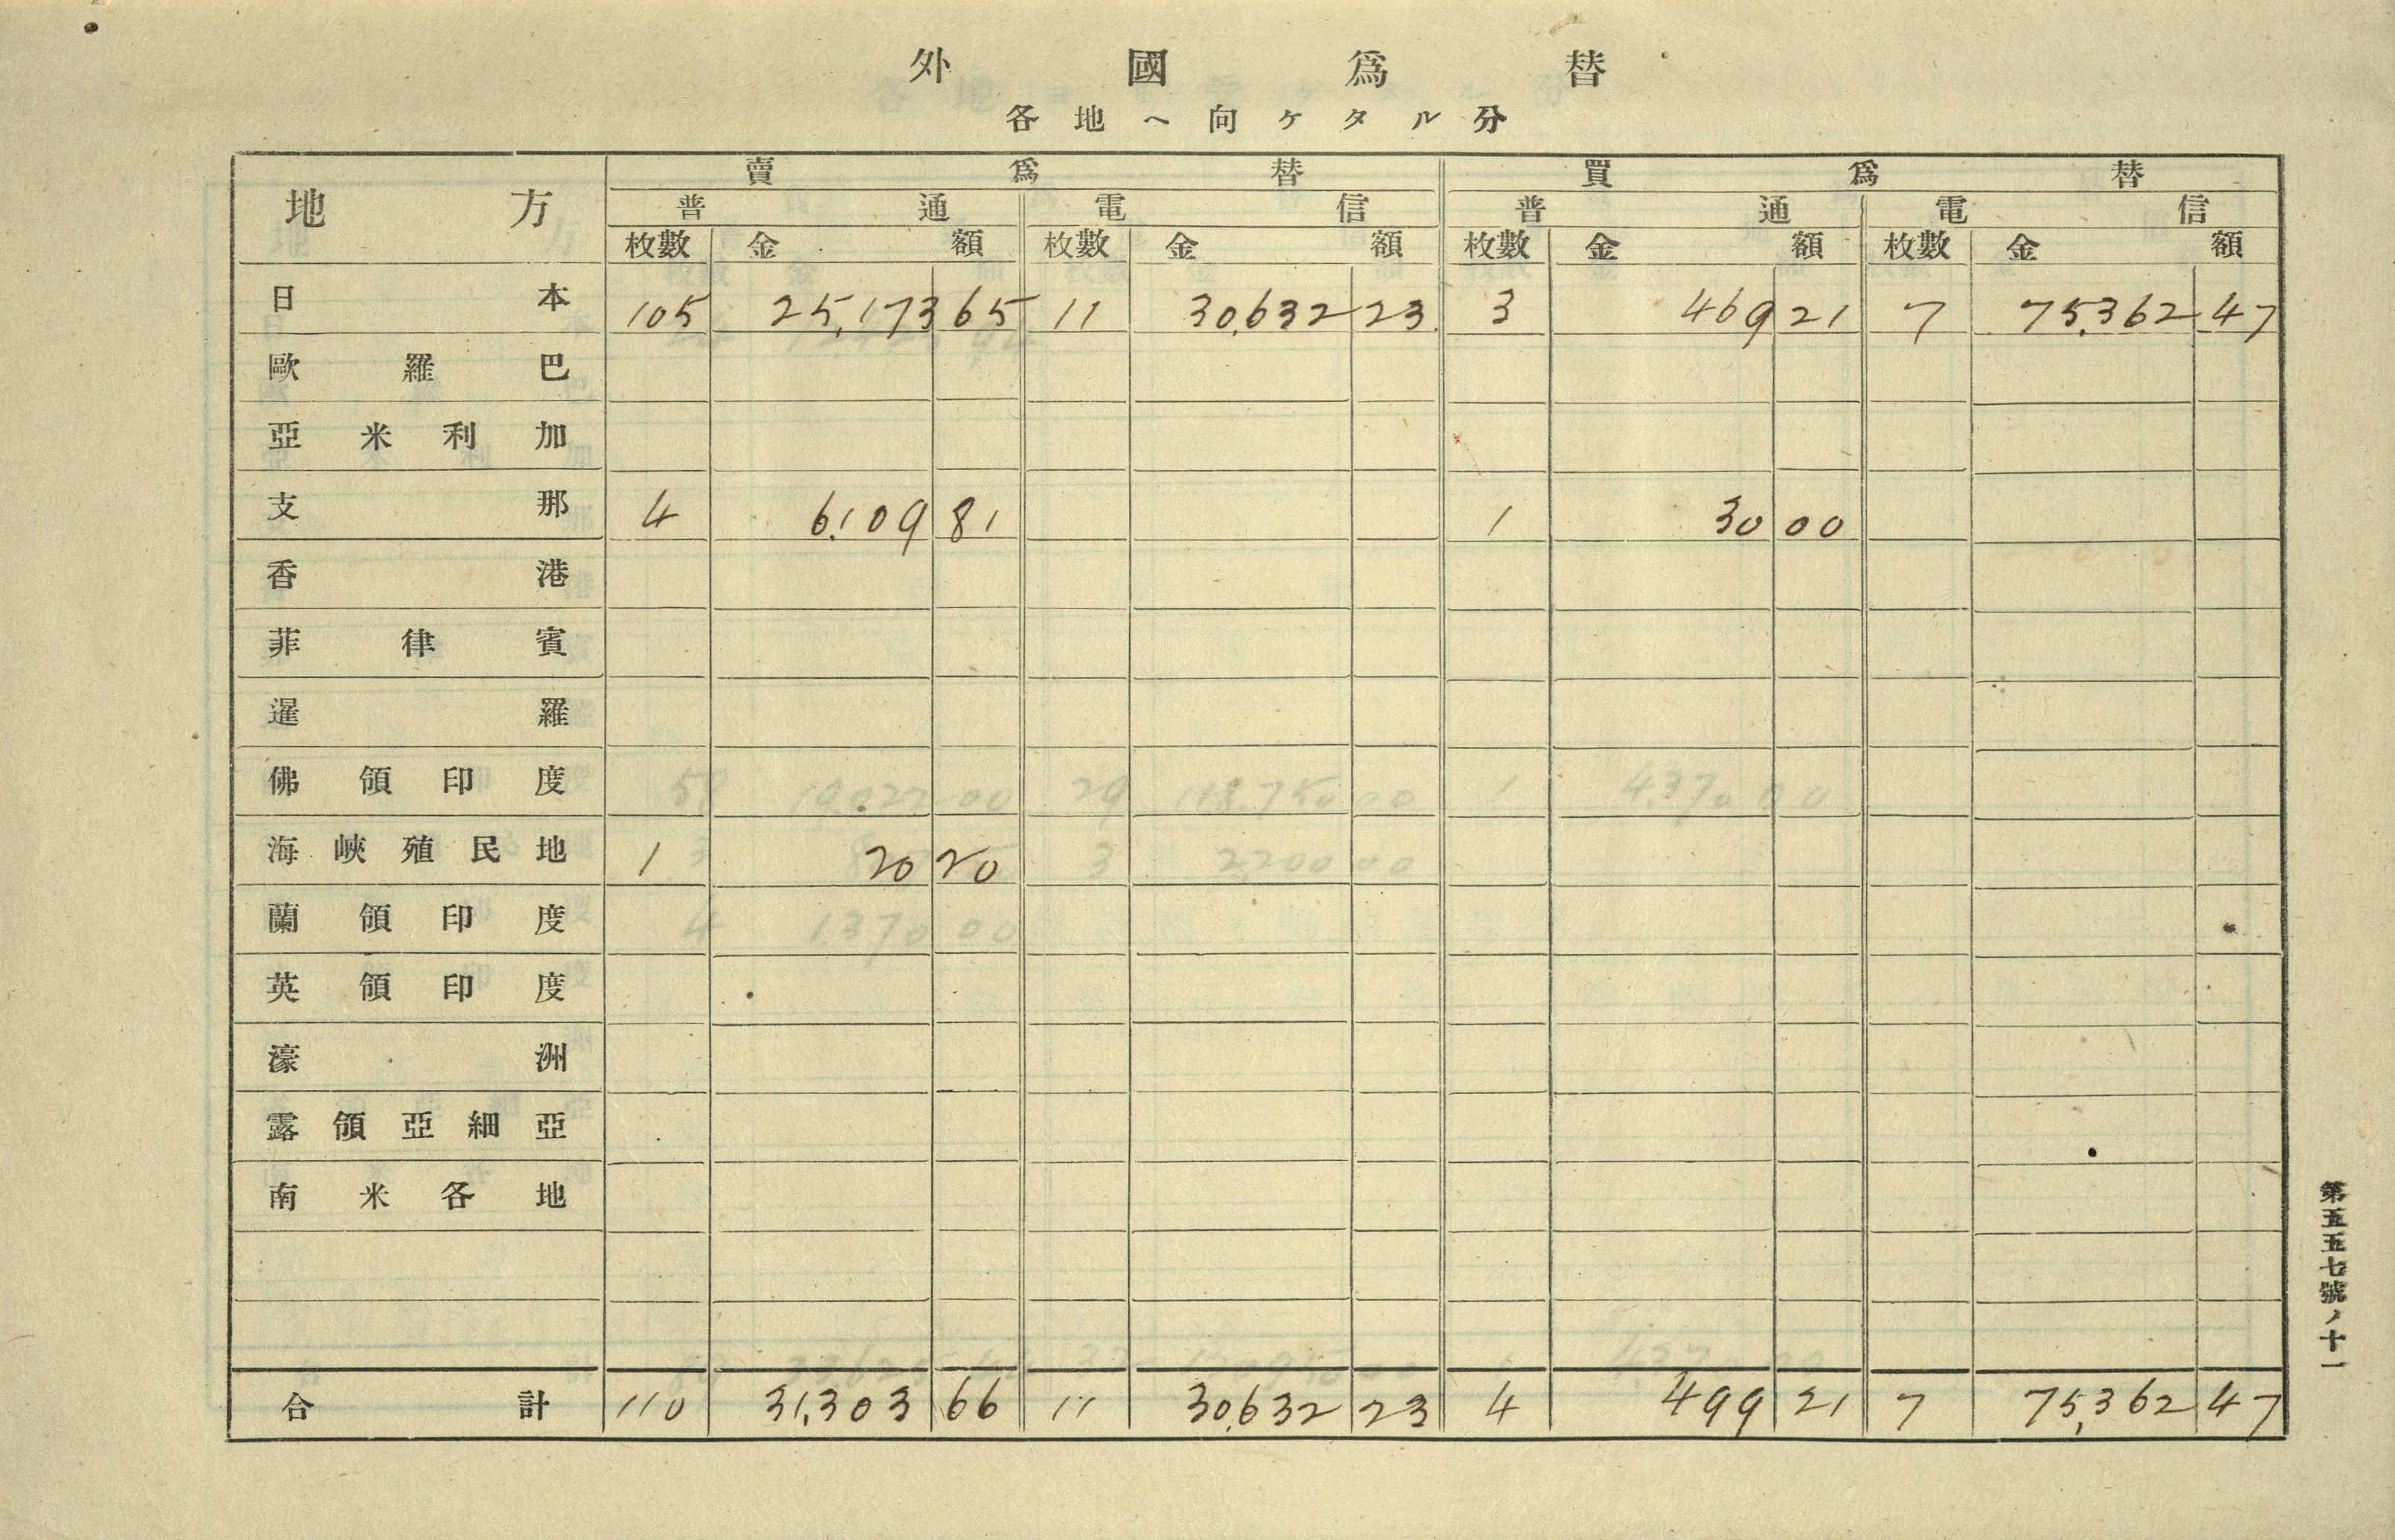 外國爲替
各地ヘ向ケタル分
地方 賣爲替 買爲替
普通 電信 普通 電信
枚數 金額 枚數 金額 枚數 金額 枚數 金額
日本 105 25,173 65 11 30,632 23 3 469 21 7 75,362 47
歐羅巴
亞米利加
支那 4 6,109 81 1 30 00
香港
菲律賓
暹羅
佛領印度
海峽殖民地 1 20 20
蘭領印度
英領印度
濠洲
露領亞細亞
南米各地
合計 110 31,303 66 11 30,632 23 4 499 21 7 75,362 47
第五五七號ノ十一